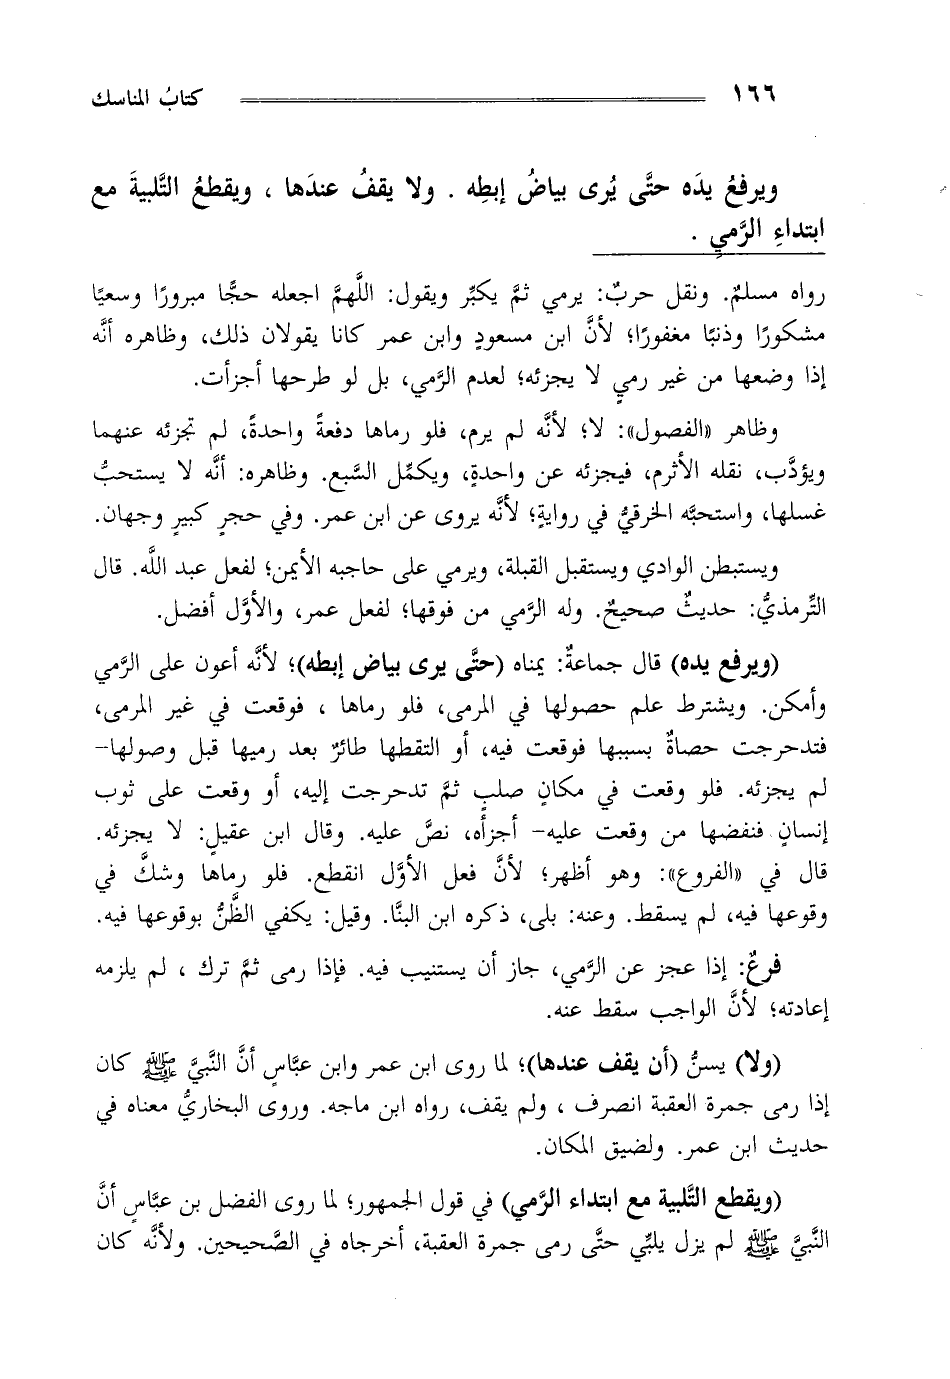 ١٦٦ كتابُ المناسك
ويرفعُ يدَه حتَّى يُرى بياضُ إبطِه . ولا يقفُ عندَها ، ويقطعُ التَّلبيةَ مع
ابتداءِ الرَّميِ .
رواه مسلمٌ. ونقل حربٌ: يرمي ثمَّ يكبِّر ويقول: اللَّهمَّ اجعله حجًّا مبرورًا وسعيًا
مشكورًا وذنبًا مغفورًا؛ لأنَّ ابن مسعودٍ وابن عمر كانا يقولان ذلك، وظاهره أنَّه
إذا وضعها من غير رميٍ لا يجزئه؛ لعدم الرَّمي، بل لو طرحها أجزأت.
وظاهر «الفصول»: لا؛ لأنَّه لم يرم، فلو رماها دفعةً واحدةً، لم تجزئه عنهما
ويؤدَّب، نقله الأثرم، فيجزئه عن واحدةٍ، ويكمِّل السَّبع. وظاهره: أنَّه لا يستحبُّ
غسلها، واستحبَّه الخرقيُّ في روايةٍ؛ لأنَّه يروى عن ابن عمر. وفي حجرٍ كبيرٍ وجهان.
ويستبطن الوادي ويستقبل القبلة، ويرمي على حاجبه الأيمن؛ لفعل عبد الله. قال
التِّرمذيُّ: حديثٌ صحيحٌ. وله الرَّمي من فوقها؛ لفعل عمر، والأوَّل أفضل.
(ويرفع يده) قال جماعةٌ: يمناه (حتَّى يرى بياض إبطه)؛ لأنَّه أعون على الرَّمي
وأمكن. ويشترط علم حصولها في المرمى، فلو رماها ، فوقعت في غير المرمى،
فتدحرجت حصاةٌ بسببها فوقعت فيه، أو التقطها طائرٌ بعد رميها قبل وصولها–
لم يجزئه. فلو وقعت في مكانٍ صلبٍ ثمَّ تدحرجت إليه، أو وقعت على ثوب
إنسانٍ فنفضها من وقعت عليه– أجزأه، نصَّ عليه. وقال ابن عقيلٍ: لا يجزئه.
قال في «الفروع»: وهو أظهر؛ لأنَّ فعل الأوَّل انقطع. فلو رماها وشكَّ في
وقوعها فيه، لم يسقط. وعنه: بلى، ذكره ابن البنَّا. وقيل: يكفي الظَّنُّ بوقوعها فيه.
فرعٌ: إذا عجز عن الرَّمي، جاز أن يستنيب فيه. فإذا رمى ثمَّ ترك ، لم يلزمه
إعادته؛ لأنَّ الواجب سقط عنه.
(ولا) يسنُّ (أن يقف عندها)؛ لما روى ابن عمر وابن عبَّاسٍ أنَّ النَّبيَّ ﷺ كان
إذا رمى جمرة العقبة انصرف ، ولم يقف، رواه ابن ماجه. وروى البخاريُّ معناه في
حديث ابن عمر. ولضيق المكان.
(ويقطع التَّلبية مع ابتداء الرَّمي) في قول الجمهور؛ لما روى الفضل بن عبَّاسٍ أنَّ
النَّبيَّ ﷺ لم يزل يلبِّي حتَّى رمى جمرة العقبة، أخرجاه في الصَّحيحين. ولأنَّه كان